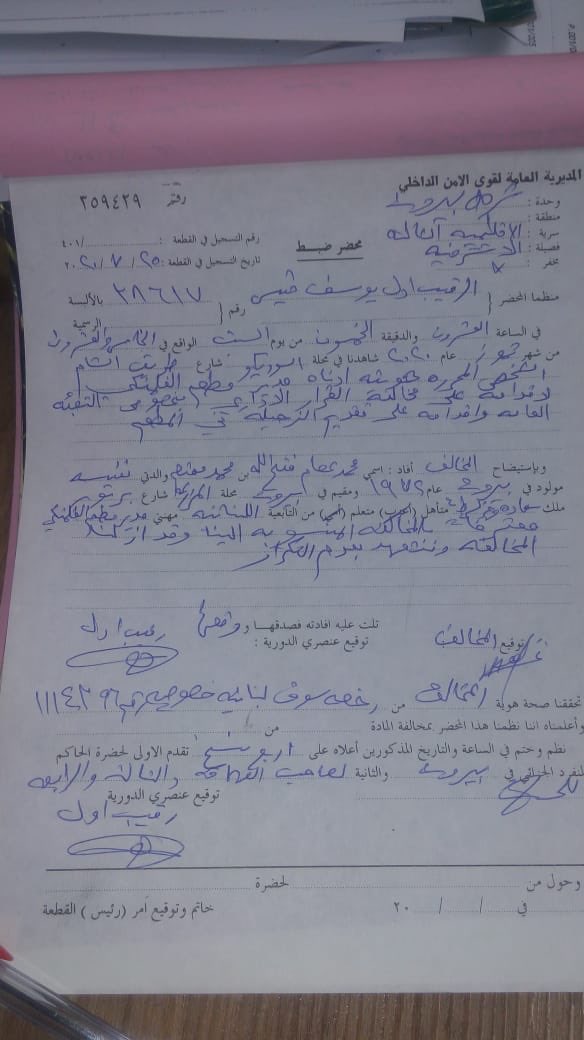 المديرية العامة لقوى الامن الداخلي
رقم ٢٥٩٤٢٩
وحدة : شرطة بيروت
منطقة :
سرية : الاقليمية الثالثة
فصيلة : الاشرفية
مخفر :
رقم التسجيل في القطعة : /٤٠١
تاريخ التسجيل في القطعة : ٢٥ / ٧ / ٢٠٢٠
محضر ضبط
منظما المحضر الرقيب اول يوسف رقم ٣٨٦١٧ بالألبسة الرسمية
في الساعة العشرون والدقيقة الخمسون من يوم السبت الواقع في الخامس والعشرون
من شهر تموز عام ٢٠٢٠ شاهدنا في محلة السوديكو شارع طريق الشام
الشخص المحررة هويته ادناه مدير مطعم
لاقدامه على مخالفة القرار الاداري بخصوص التعبئة
العامة واقدامه على تقديم النرجيلة في المطعم
وبإستيضاح المخالف أفاد : اسمي محمد عصام فتح الله بن محمد والدتي نفيسه
مولود في بيروت عام ١٩٧٢ ومقيم في بيروت محلة المزرعة شارع
ملك متأهل (أعزب) متعلم (أمي) من التابعية اللبنانية مهنتي مدير مطعم
بالمخالفة المنسوبة الينا وقد ازلنا
المخالفة ونتعهد بعدم التكرار
تلت عليه افادته فصدقها ووقعها
توقيع المخالف
توقيع عنصري الدورية :
رقيب اول
تحققنا صحة هوية المخالف من رخصة سوق لبنانية خصوصية رقم
وأعلمناه اننا نظمنا هذا المحضر بمخالفة المادة من
نظم وختم في الساعة والتاريخ المذكورين أعلاه على اربع نسخ تقدم الاولى لحضرة الحاكم
المنفرد الجزائي في بيروت والثانية لصاحب العلاقة والثالثة والرابعة
توقيع عنصري الدورية
رقيب اول
وحول من لحضرة
في / / ٢٠
خاتم وتوقيع آمر (رئيس) القطعة